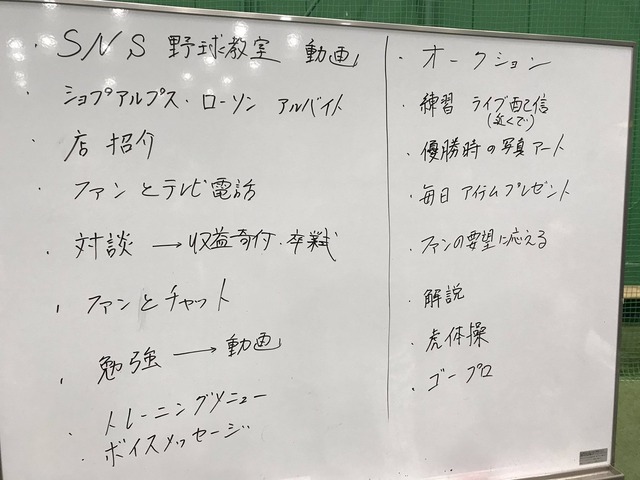 ・SNS 野球教室 動画
・ショプアルプス・ローソン アルバイト
・店紹介
・ファンとテレビ電話
・対談 → 収益寄付・卒業式
・ファンとチャット
・勉強 → 動画
・トレーニングメニュー
・ボイスメッセージ
・オークション
・練習 ライブ配信
(近くで)
・優勝時の写真アート
・毎日 アイテムプレゼント
・ファンの要望に応える
・解説
・虎体操
・ゴープロ